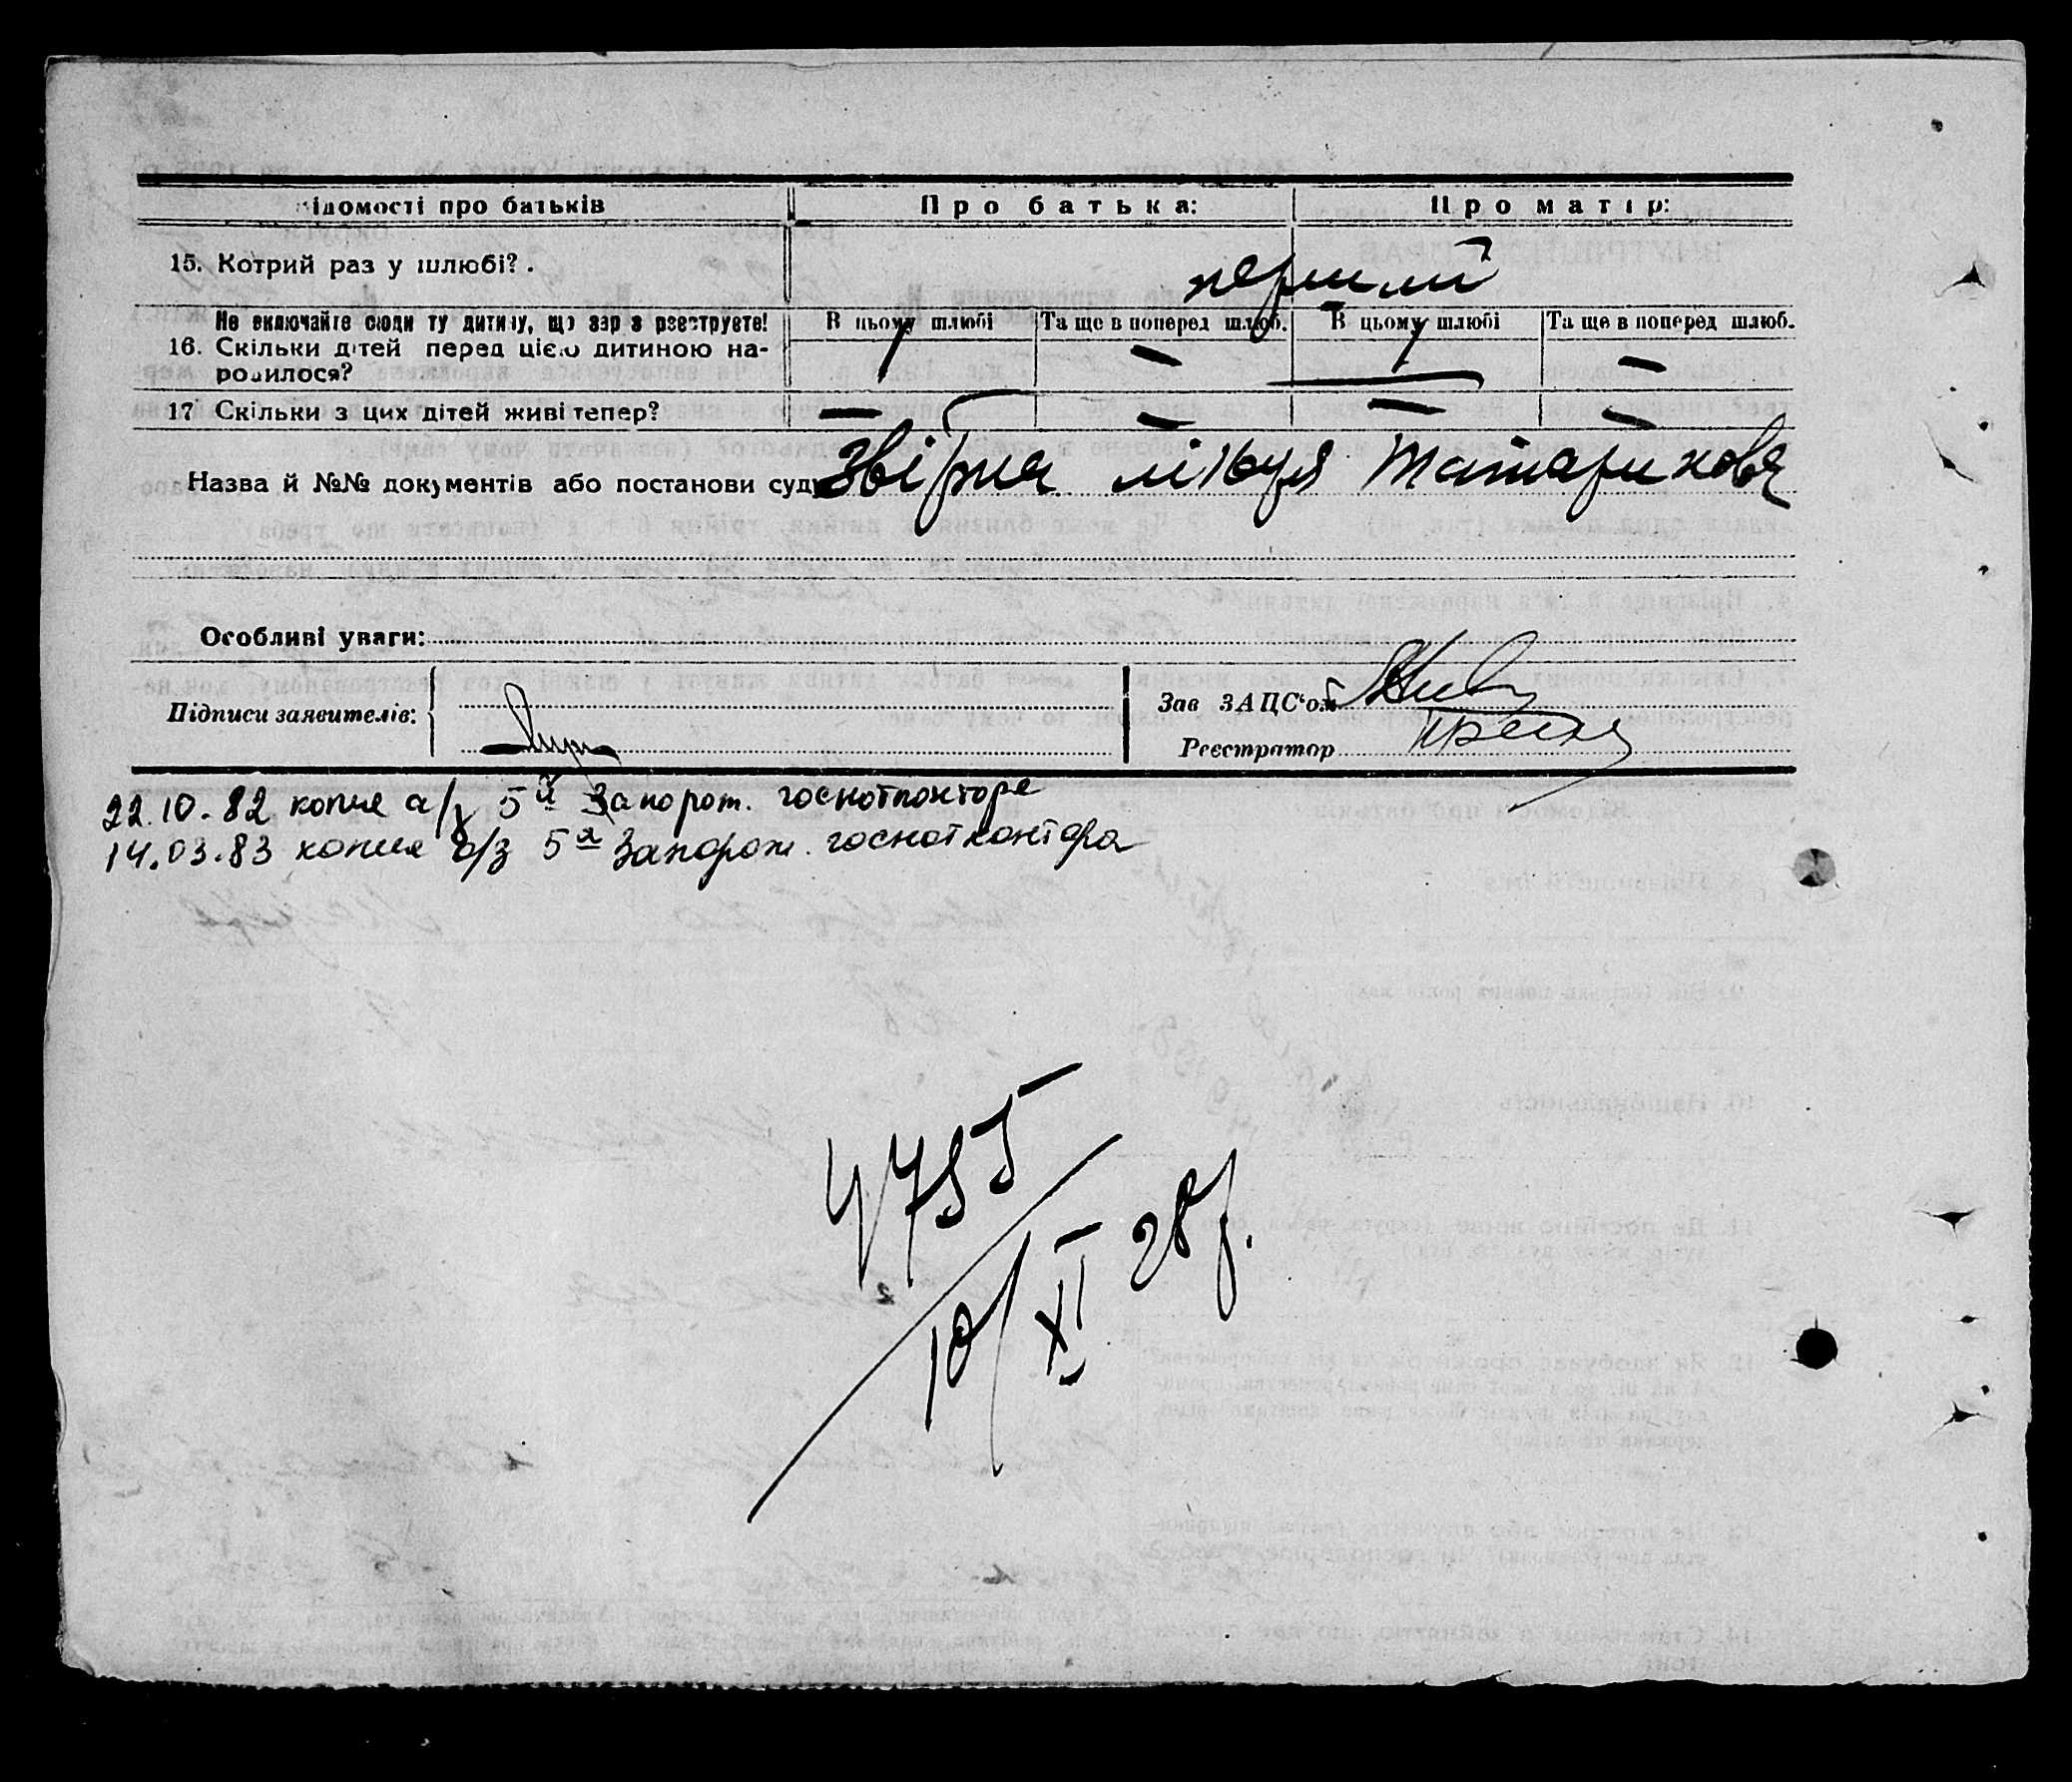 ідомості про батьків
Про батька:
Про матір:
15. Котрий раз у шлюбі?.
перший
Не включайте сюди ту дитину, що зараз реєструєте!
В цьому шлюбі
Та ще в поперед шлюб.
В цьому шлюбі
Та ще в поперед шлюб.
16. Скільки дітей перед цією дитиною на-
родилося?
1 — 1 —
17 Скільки з цих дітей живі тепер?
— — — —
Назва й №№ документів або постанови суду
Особливі уваги:
Підписи заявителів:
Зав ЗАЦС'ом
Реєстратор
22.10.82 копия 5й Запорож. госнотконторе
14.03.83 копия 5я Запорож. госнотконтора
4755
10/XI 28р.